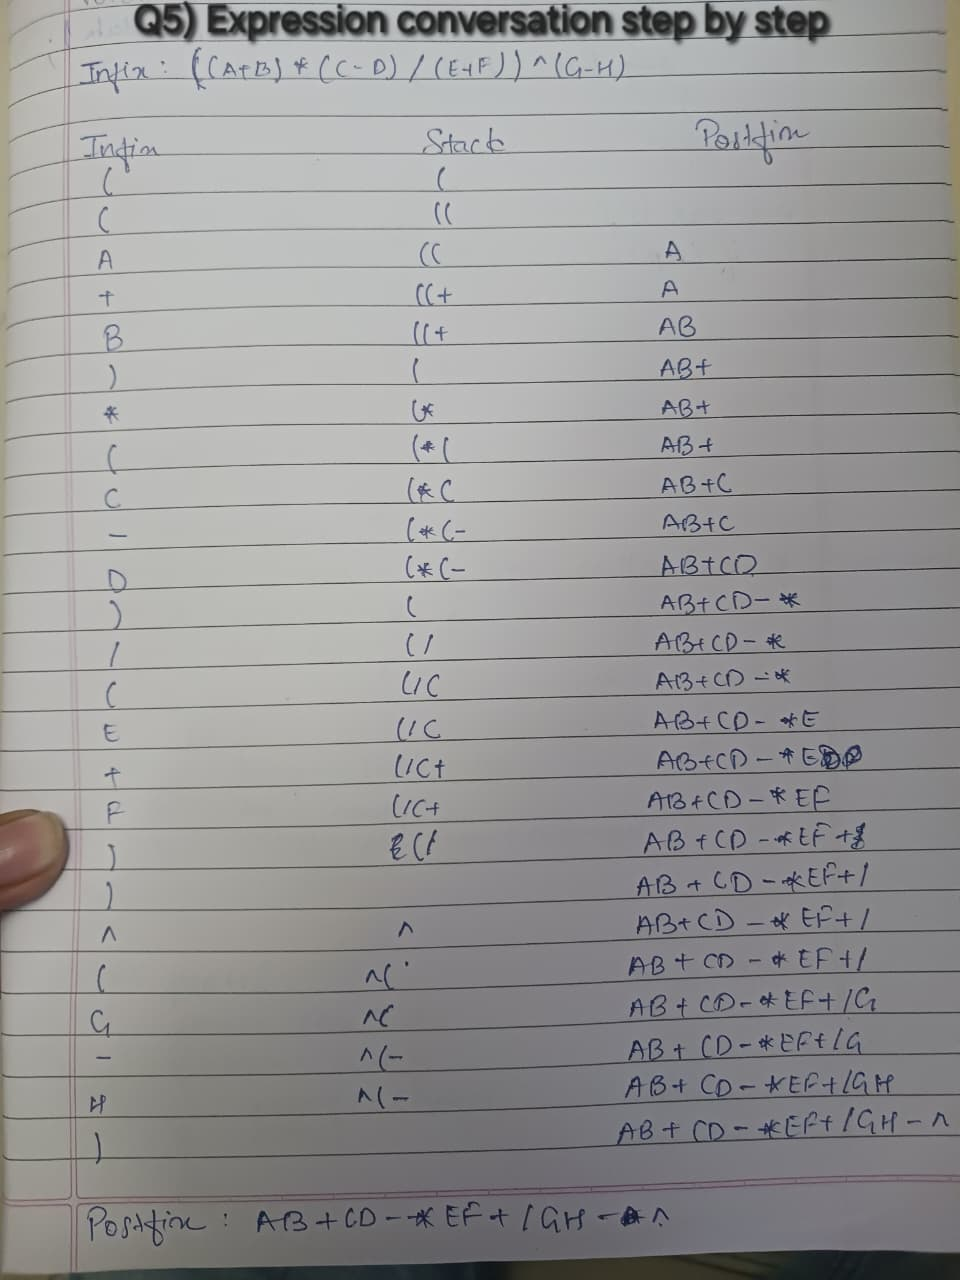 Q5) Expression conversation step by step
Infix : ((A+B) * (C-D) / (E+F)) ^ (G-H)
Infix Stack Postfix
( (
( ((
A (( A
+ ((+ A
B ((+ AB
) ( AB+
* (* AB+
( (*( AB+
C (*( AB+C
- (*(- AB+C
D (*(- AB+CD
) ( AB+CD-*
/ (/ AB+CD-*
( (/( AB+CD-*
E (/( AB+CD-*E
+ (/(+ AB+CD-*E
F (/(+ AB+CD-*EF
) (/ AB+CD-*EF+
) AB+CD-*EF+/
^ ^ AB+CD-*EF+/
( ^( AB+CD-*EF+/
G ^( AB+CD-*EF+/G
- ^(- AB+CD-*EF+/G
H ^(- AB+CD-*EF+/GH
) AB+CD-*EF+/GH-^
Postfix : AB+CD-*EF+/GH-^